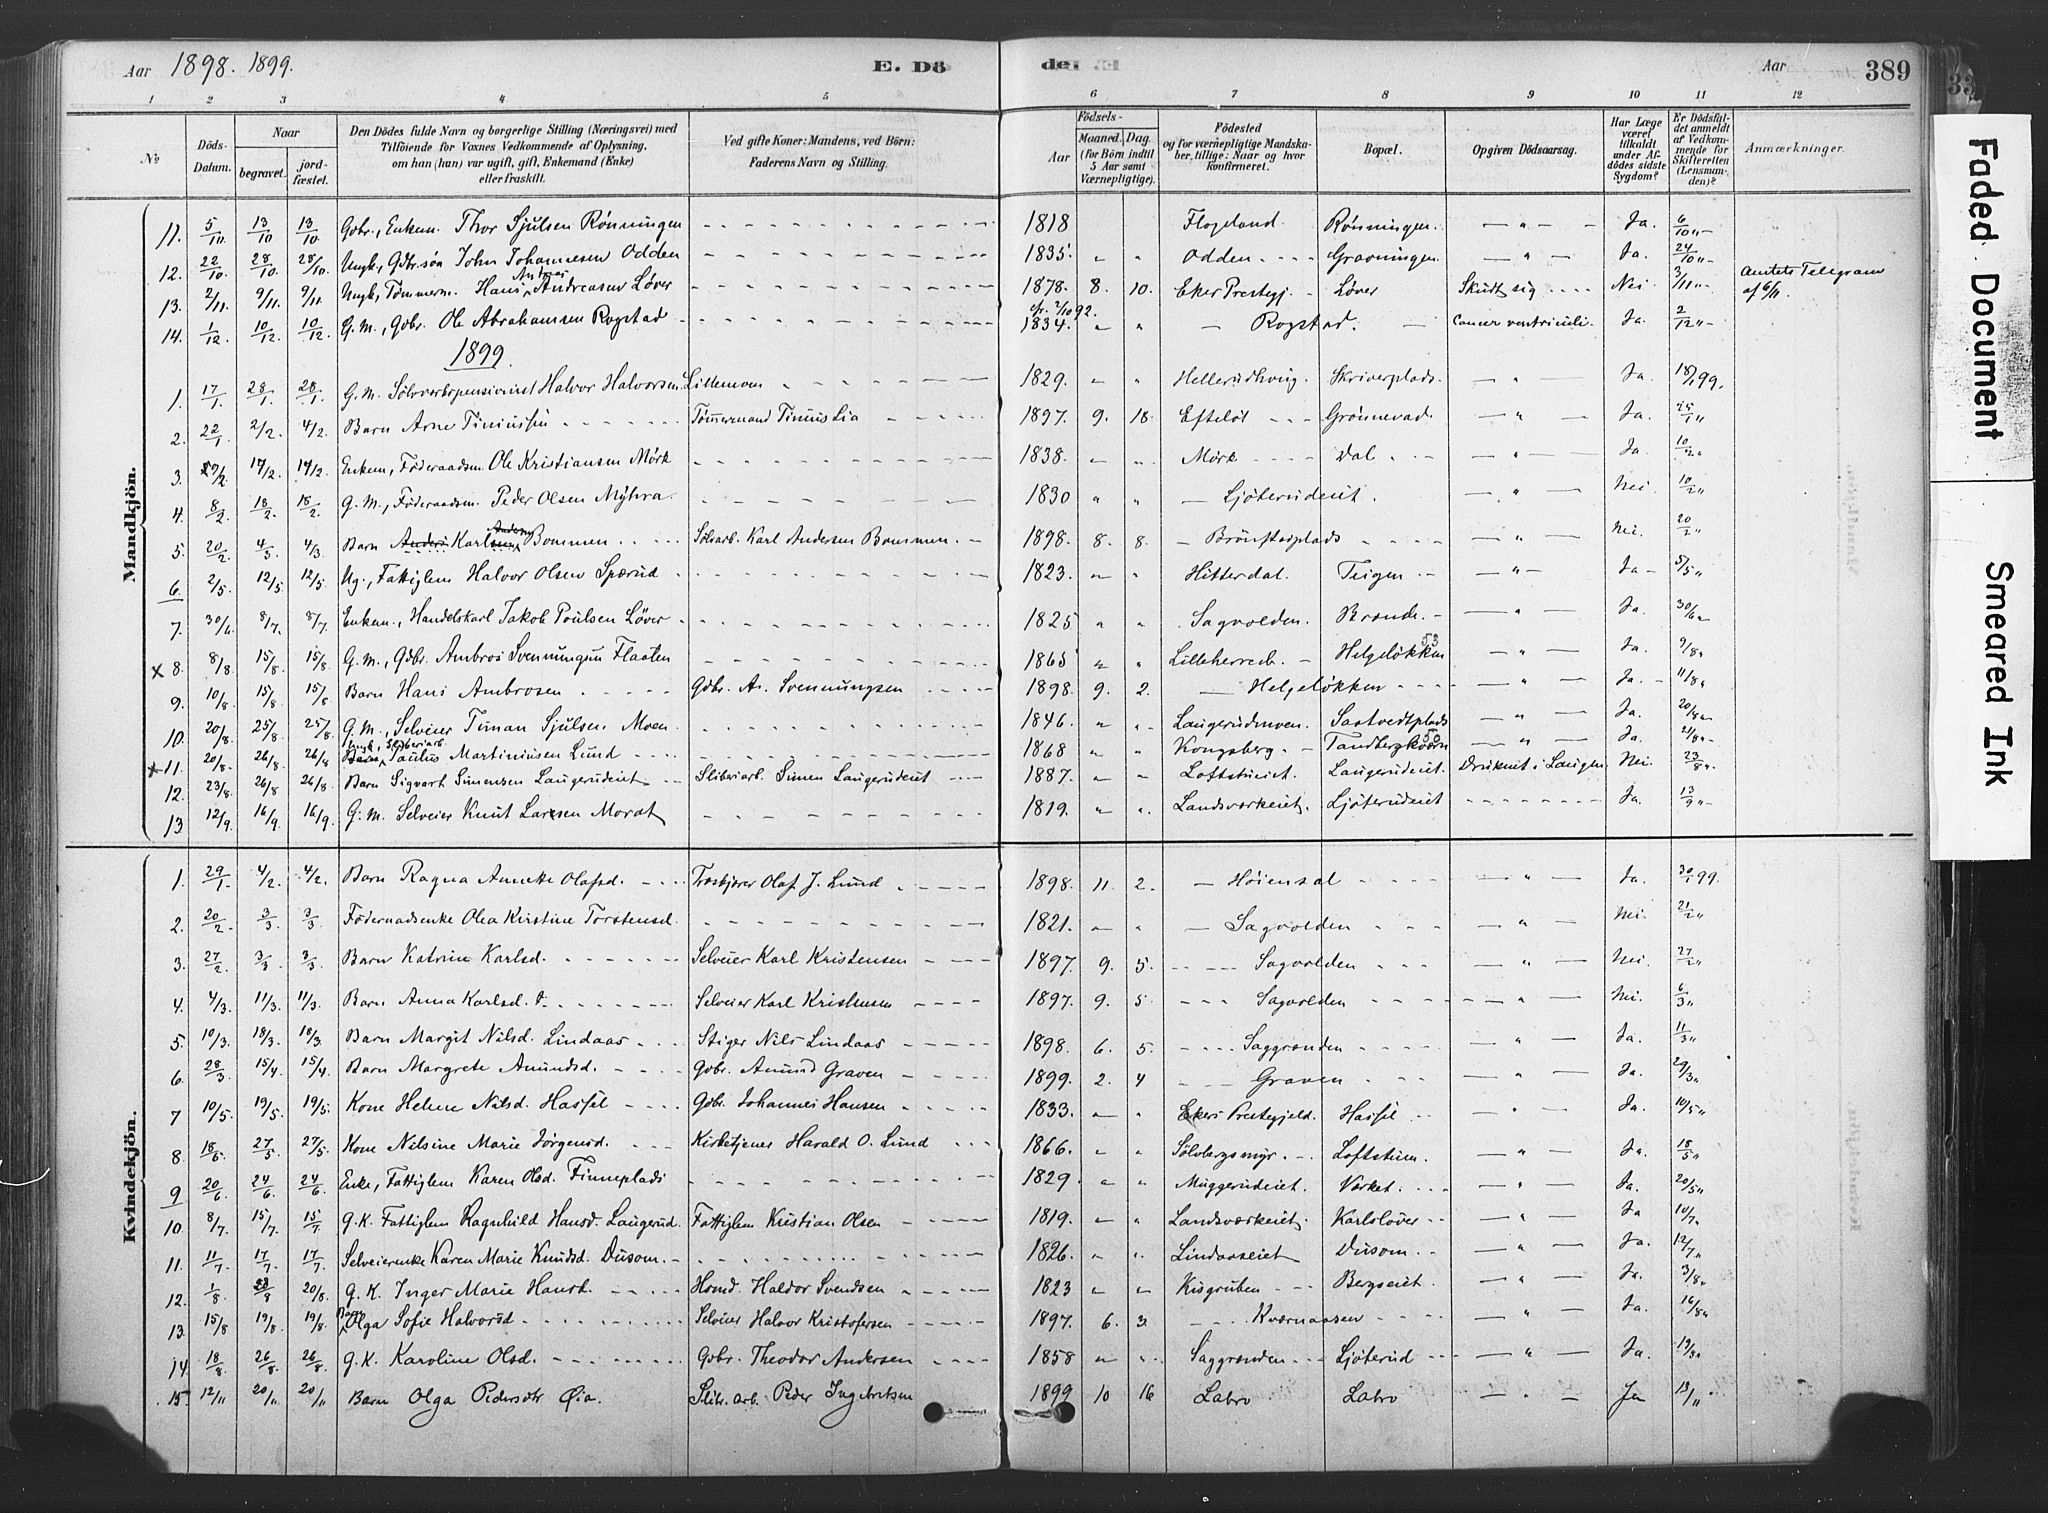 Aar 1898. 1899. E. Dö
de! Aar 389
1 2 3 4 5 6 7 8 9 10 11 12
No Döds-Datum. Naar begravet. jord-fæstet. Den Dödes fulde Navn og borgerlige Stilling (Næringsvei) med Tilföiende for Voxnes Vedkommende af Oplysning, om han (hun) var ugift, gift, Enkemand (Enke) eller fraskilt. Ved gifte Koner: Mandens, ved Börn: Faderens Navn og Stilling. Födsels- Aar Maaned. Dag. (for Börn indtil 5 Aar samt Værnepligtige). Födested og for værnepligtige Mandska-ber, tillige: Naar og hvor konfirmeret. Bopæl. Opgiven Dödsaarsag. Har Læge været tilkaldt under Af-dödes sidste Sygdom? Er Dödsfal-det anmeldt af Vedkom-mende for Skifteretten (Lensman-den)? Anmærkninger.
Mandkjön.
11. 5/10. 13/10 13/10. Gbr., Enkem. Thor Sjulsen Rönningen 1818 Flogeland. Rönningen. — " — Ja. 6/10 "-
12. 22/10. 28/10. 28/10. Ungk., Gbr.sön John Johannesen Odden 1835 " " Odden Gravningen. — " — Ja. 24/10 "-
13. 2/11. 9/11. 9/11. Ungk., Tömmerm. Hans Andreasen Löver 1878. 8. 10. Eker Prestegj. Löver Skudt sig Nei 3/11 "- Amtets Telegram af 6/11.
14. 1/12. 10/12. 10/12. G. M., Gbr. Ole Abrahamsen Rogstad 1834. " " — Rogstad. — Cancer ventriculi. Ja. 2/12 "-
1899.
1. 17/1. 28/1. 28/1. G. M. Sölvverkspensionist Halvor Halvorsen Lillemoen 1829. " " Hellerudhvig. Skriverplads. — " — Ja. 18/1 99.
2. 22/1. 2/2. 4/2. Barn Arne Tiniussen Tömmermand Tinius Lia 1897. 9. 18. Efteløt Grönnevad. — " — Ja. 25/1 "
3. 7/2. 17/2. 17/2. Enkem., Föderaadsm. Ole Kristiansen Mörk 1838. " " Mörk Dal — " — Ja 10/2 "
4. 8/2. 18/2. 18/2. G. M., Föderaadsm. Peder Olsen Myhra. 1830 " " — Ljöterudeiet. — " — Nei. 10/2 "
5. 20/2. 4/3. 4/3. Barn Karl Andersen Bommen Sölvarb. Karl Andersen Bommen. 1898. 8. 8. — Brönstadplads — " — Nei. 20/2 "
6. 2/5. 12/5. 12/5. Ug., Fattiglem Halvor Olsen Spærud 1823. " " Hitterdal. Teigen. — " — Ja 5/5 "
7. 30/6. 8/7. 8/7. Enkem., Handelskarl Jakob Poulsen Löver 1825 " " Sagvolden. Brande. — " — Ja. 30/6 "
x 8. 8/8. 15/8. 15/8. G. M., Gbr. Ambros Svennungsen Flaaten 1865 " " Lilleherred. Helgeløkken 53 — " — Ja. 9/8 "
9. 10/8. 15/8. 15/8. Barn Hans Ambrosen Gbr. A. Svennungsen 1898. 9. 2. — Helgeløkken — " — Ja. 11/8 "
10. 20/8. 25/8. 25/8. G. M., Selveier Timan Sjulsen Moen 1846. " " Laugerudmoen. Saatvedtplads — " — Ja. 20/8 "
x 11. 20/8. 26/8. 26/8. Ungk. Sliberiarb. Paulus Martiniusen Lund 1868 " " Kongsberg. Tandbergkværn 50 — " — Ja. 21/8 "
12. 23/8. 26/8. 26/8. Barn Sigvart Simensen Laugerudeiet Sliberiarb. Simen Laugerudeiet 1887. " " Loftstueiet. Laugerudeiet. Druknet i Laagen Nei. 23/8 "
13 12/9. 16/9. 16/9. G. M. Selveier Knut Larsen Morat 1819. " " Landsværkeiet. Ljöterudeiet Ja. 13/9 "
Kvindekjön.
1. 29/1. 4/2. 4/2. Barn Ragna Annette Olafsd. Træskjærer Olaf J. Lund 1898. 11. 2. — Höiensal — " — Ja. 30/1 99.
2. 20/2. 3/3. 3/3. Föderaadsenke Olea Kristine Torstensd. 1821. " " — Sagvolden — " — Nei. 21/2 "
3. 27/2. 3/3. 3/3. Barn Katrine Karlsd. Selveier Karl Kristensen 1897. 9. 5. Sagvolden — " — Nei. 27/2 "
4. 4/3. 11/3. 11/3. Barn Anna Karlsd. Selveier Karl Kristensen 1897. 9. 5. Sagvolden — " — Nei. 6/3 "
5. 10/3. 18/3. 18/3. Barn Margit Nilsd. Lindaas Stiger Nils Lindaas 1898. 6. 5. Saggrenden — " — Ja. 11/3 "
6. 28/3. 15/4. 15/4. Barn Margrete Amundsd. Gbr. Amund Graven 1899. 2. 4 Graven — " — Ja. 29/3 "
7 10/5. 19/5. 19/5. Kone Helene Nilsd. Hassel Gbr. Johannes Hansen 1833. " " Ekers Prestegjeld. Hassel — " — Ja. 10/5 "
8. 18/5. 27/5. 27/5. Kone Nilsine Marie Jörgensd. Kirketjener Harald O. Lund 1866. " " Sölvbergsmyr. Loftstuen. — " — Ja. 18/5 "
9 20/6. 24/6. 24/6. Enke, Fattiglem Karen Olsd. Finneplads 1829. " " Muggerudeiet. Verket. — " — Ja. 20/5 "
10. 8/7. 15/7. 15/7. G. K. Fattiglem Ragnhild Hansd. Laugerud. Fattiglem Kristian Olsen 1819. " " Landsværkeiet. Karlslöver — " — Ja 10/7 "
11. 11/7. 17/7. 17/7. Selveierenke Karen Marie Knudsd. Dusom. 1826. " " Lindaaseiet Dusom. — " — Ja. 12/7 "
12. 1/8. 20/8. G. K. Inger Marie Hansd. Husmd. Haldor Svendsen 1823 " " Kisgruben Bergseiet. — " — Ja. 3/8 "
13. 15/8. 19/8. 19/8. Barn Olga Sofie Halvorsd Selveier Halvor Kristofersen 1897. 6. 3. Kværnaasen — " — Ja. 16/8 "
14. 18/8. 26/8. 26/8. G. K. Karoline Olsd. Gbr. Theodor Andersen 1858 " " Saggrenden Ljöterud — " — Ja. 19/8 "
15. 12/11 20/11 20/11 Barn Olga Pedersdtr Øia. Slibr. arb. Peder Ingebretsen 1899 10 16 Labro Labro — " — Ja 13/11
Faded Document
Smeared Ink